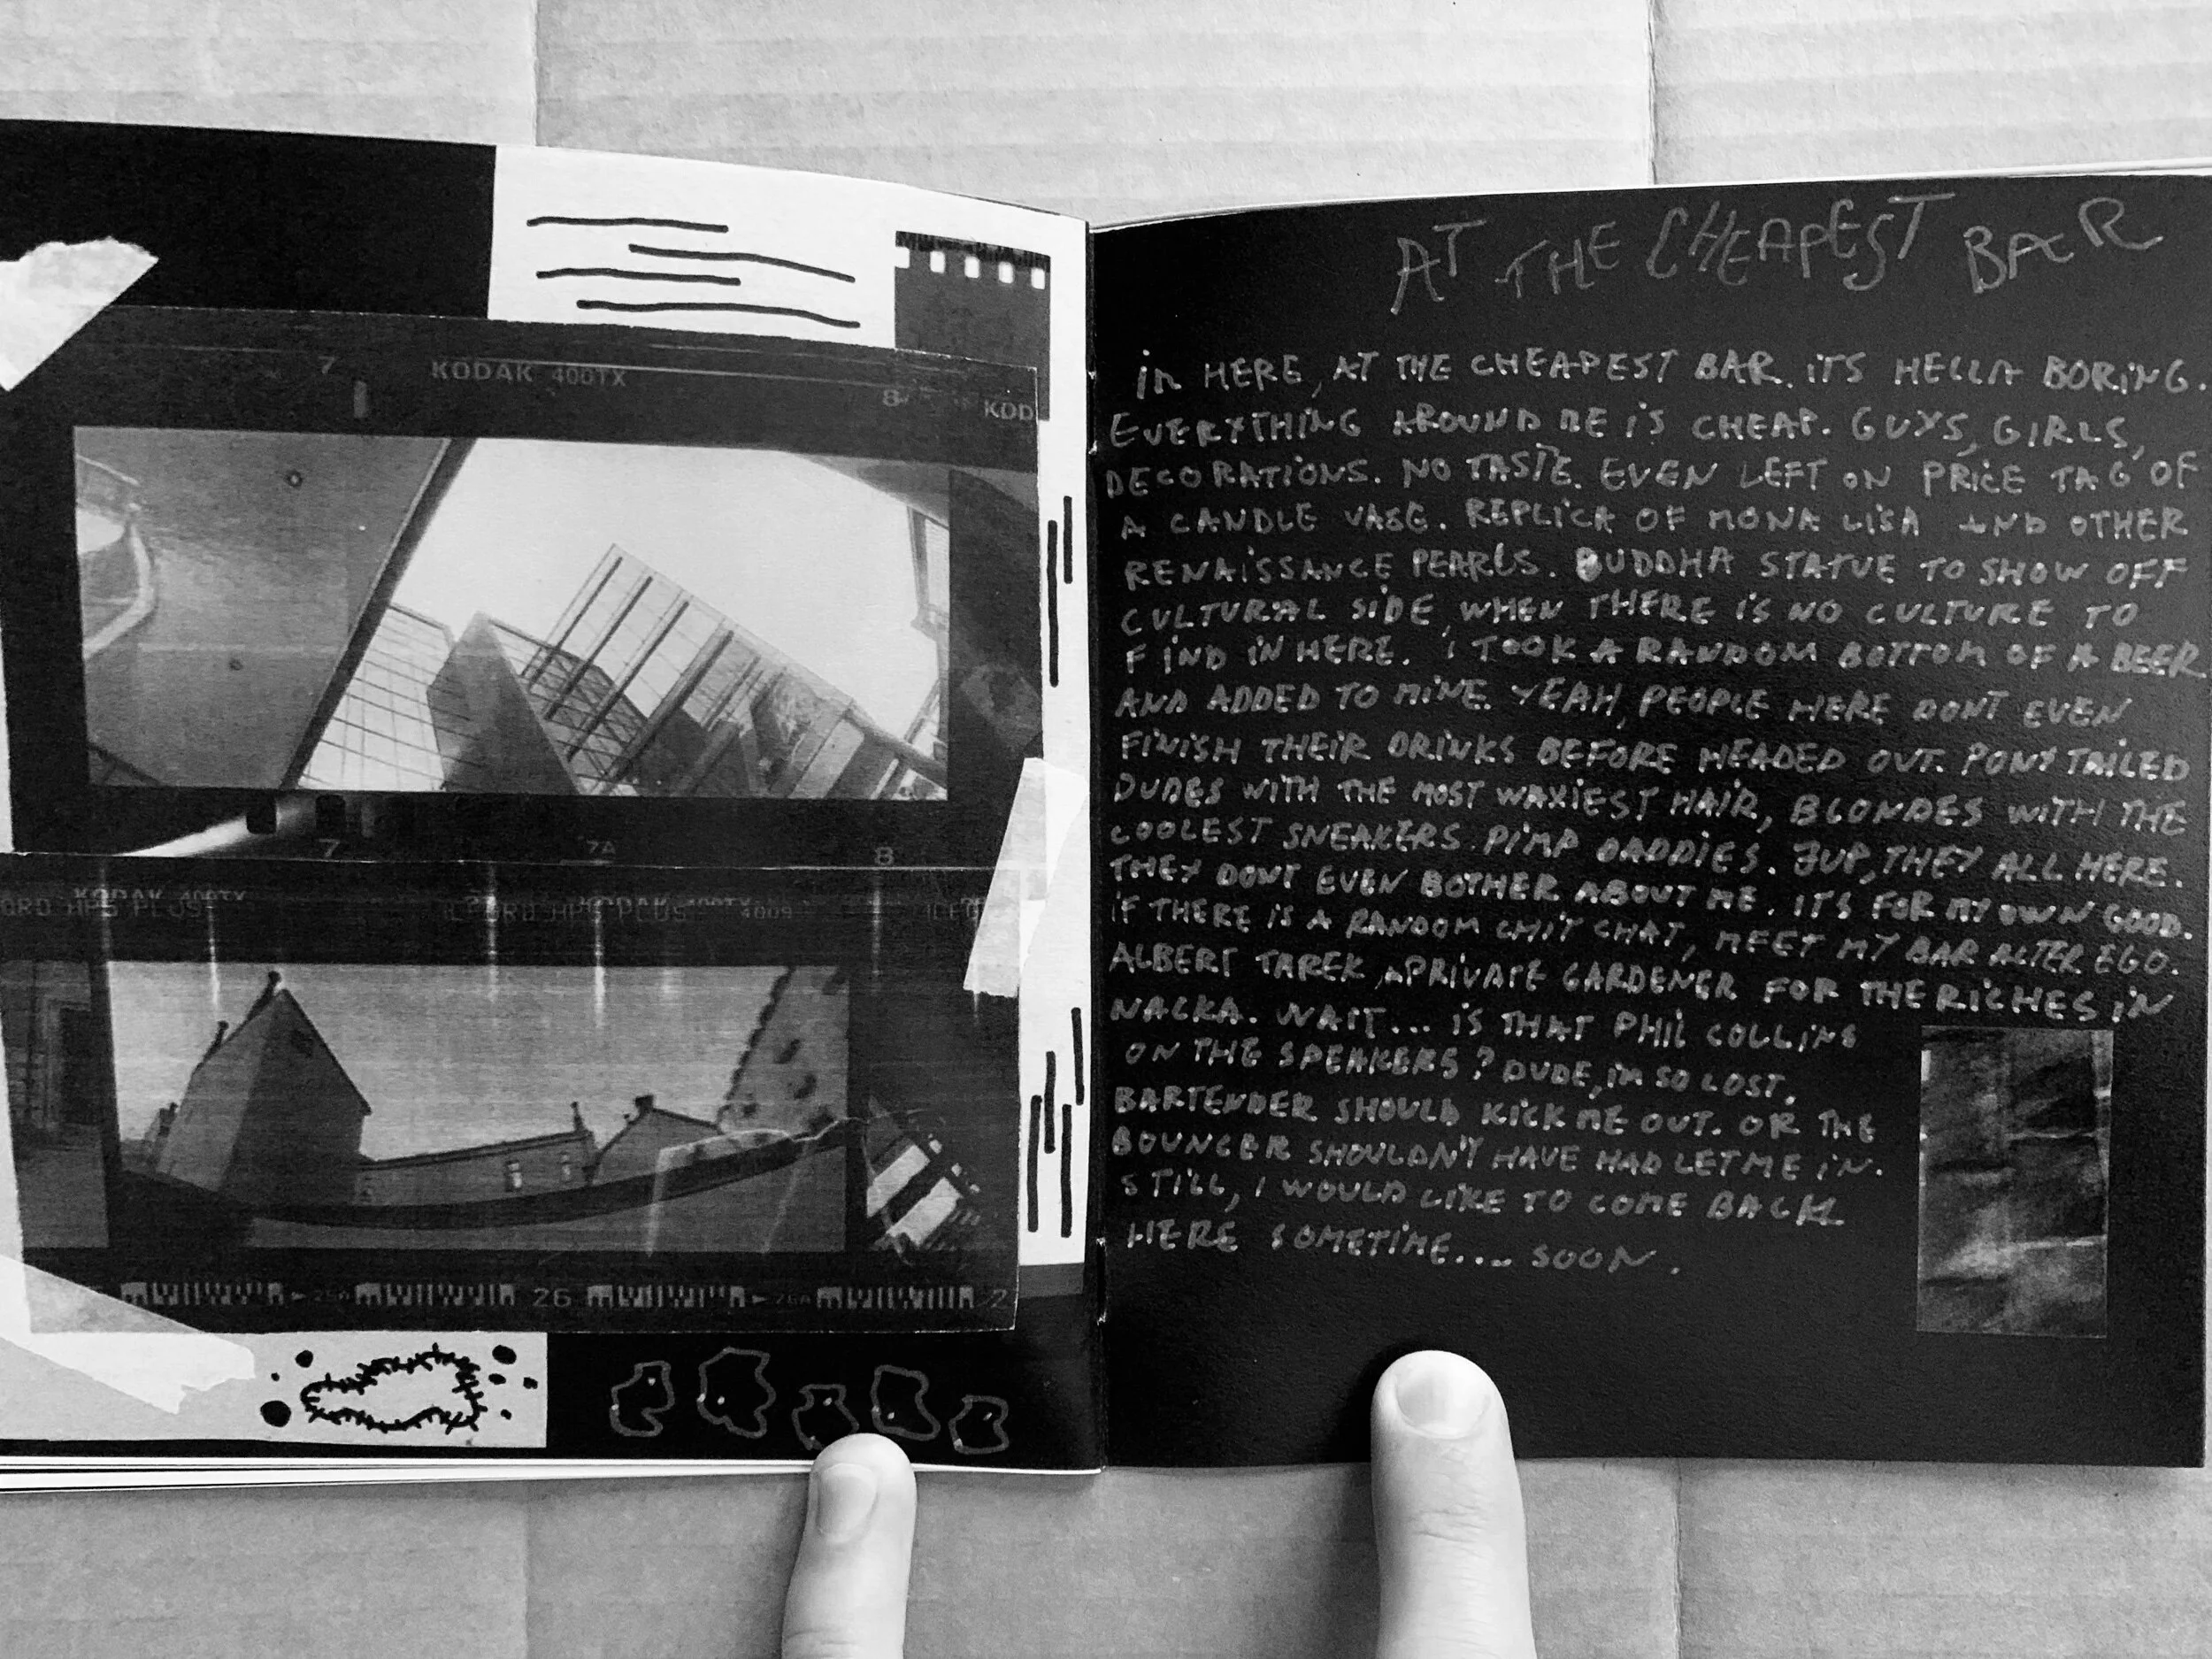 7
KODAK 400TX
8
KOD
7
7A
8
KODAK 400TX
ORD HP5 PLUS
ILFORD HP5 PLUS
4009
26
AT THE CHEAPEST BAR
in HERE, AT THE CHEAPEST BAR. iTS HELLA BORiNG.
EVERYTHING AROUND ME iS CHEAP. GUYS, GIRLS,
DECORATiONS. NO TASTE. EVEN LEFT ON PRiCE TAG OF
A CANDLE VASE. REPLiCA OF MONA LiSA AND OTHER
RENAiSSANCE PEARLS. BUDDHA STATUE TO SHOW OFF
CULTURAL SiDE, WHEN THERE iS NO CULTURE TO
FiND iN HERE. i TOOK A RANDOM BOTTOM OF A BEER
AND ADDED TO MiNE. YEAH, PEOPLE HERE DONT EVEN
FiNiSH THEiR DRiNKS BEFORE HEADED OUT. PONY TAiLED
DUDES WiTH THE MOST WAXiEST HAiR, BLONDES WiTH THE
COOLEST SNEAKERS. PiMP DADDiES. JUP, THEY ALL HERE.
THEY DONT EVEN BOTHER ABOUT ME. iTS FOR MY OWN GOOD.
iF THERE iS A RANDOM CHiT CHAT, MEET MY BAR ALTER EGO.
ALBERT TAREK, A PRiVATE GARDENER FOR THE RiCHES iN
NACKA. WAiT... iS THAT PHiL COLLiNS
ON THE SPEAKERS? DUDE, iM SO LOST.
BARTENDER SHOULD KiCK ME OUT. OR THE
BOUNCER SHOULDN'T HAVE HAD LET ME iN.
STiLL, I WOULD LiKE TO COME BACK
HERE SOMETiME.... SOON.